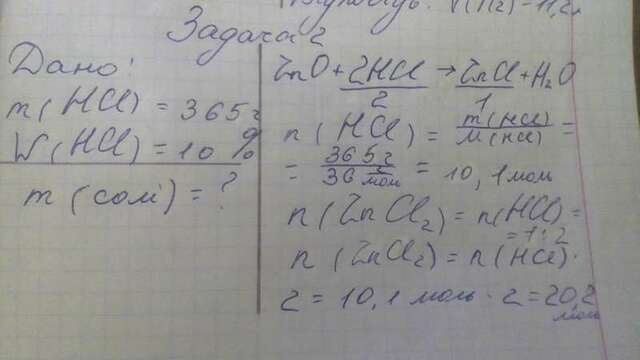 V(H2) - 11,2л
Задача 2
Дано:
m(HCl) = 365г
W(HCl) = 10%
m(солі) = ?
ZnO + 2HCl → ZnCl + H2O
2 1
n(HCl) = m(HCl) / M(HCl) =
= 365г / 36 г/моль = 10,1моль
n(ZnCl2) = n(HCl) =
= 1:2
n(ZnCl2) = n(HCl)·
2 = 10,1 моль · 2 = 20,2
моль